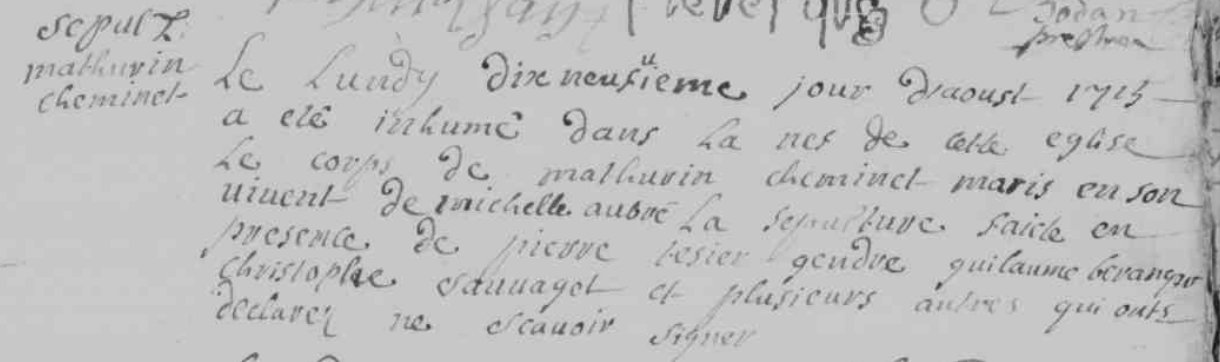 sepult.
mathurin
cheminet
Jodan
prestre
Le Lundy dix neufuieme jour d'aoust 1715
a eté inhumé dans La nef de cette eglise
Le corps de mathurin cheminet maris en son
uiuent de michelle aubré La sepulture faicte en
presence de pierre tesier gendre guilaume beranger
christophe sauuaget et plusieurs autres qui onts
declarez ne scauoir signer